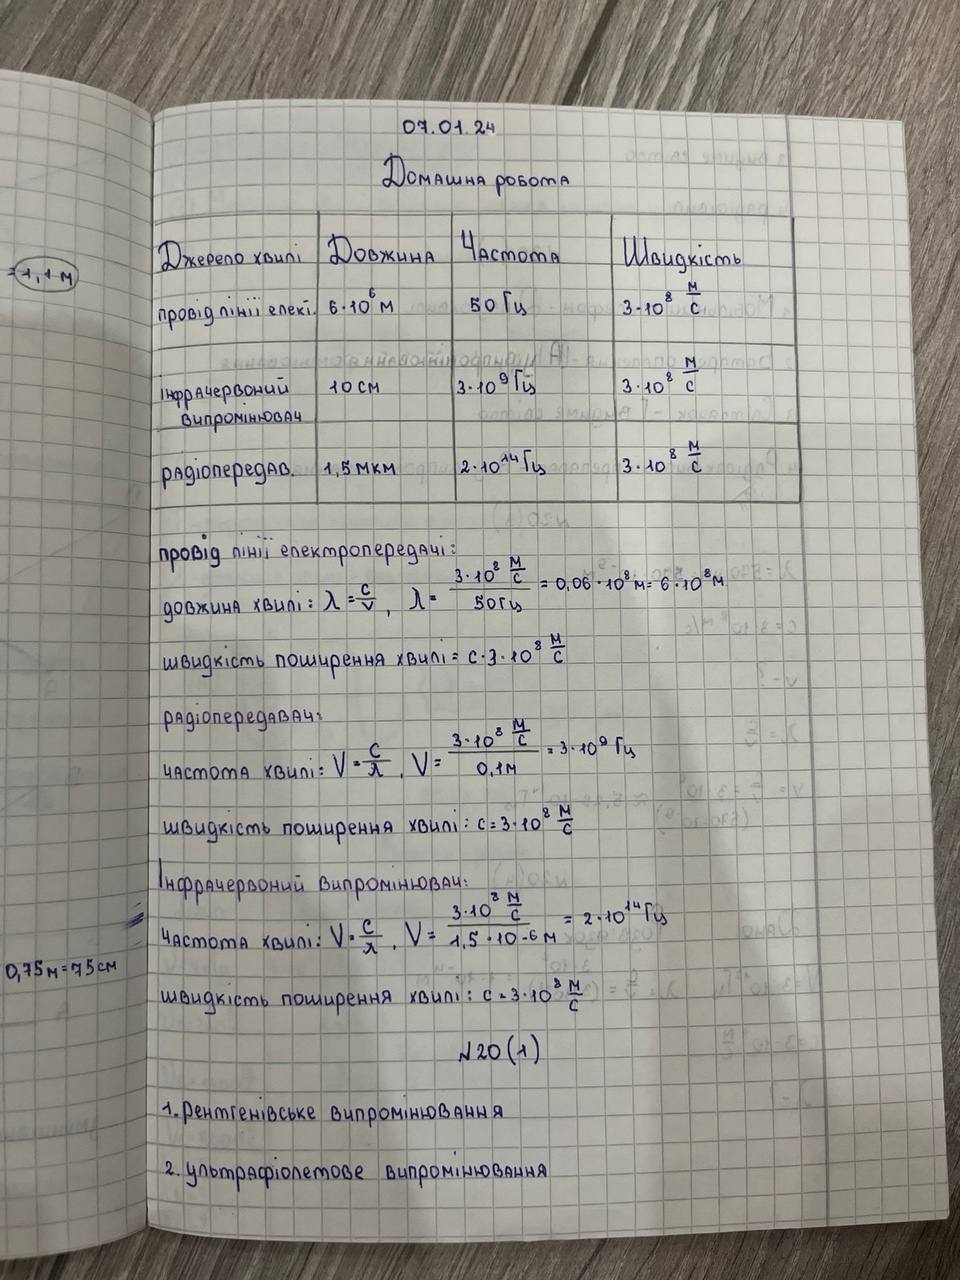 07.01.24
Домашна робота
Джерело хвилі Довжина Частота Швидкість
провід лінії елекі. 6·10⁶ м 50 Гц 3·10⁸ м/с
інфрачервоний 10 см 3·10⁹ Гц 3·10⁸ м/с
випромінювач
радіопередав. 1,5 мкм 2·10¹⁴ Гц 3·10⁸ м/с
=1,1 м
провід лінії електропередачі:
довжина хвилі: λ = c/v, λ = 3·10⁸ м/с / 50 Гц = 0,06·10⁸ м = 6·10⁸ м
швидкість поширення хвилі = c·3·10⁸ м/с
радіопередавач:
частота хвилі: V = c/λ, V = 3·10⁸ м/с / 0,1 м = 3·10⁹ Гц
швидкість поширення хвилі: c = 3·10⁸ м/с
Інфрачервоний випромінювач:
частота хвилі: V = c/λ, V = 3·10⁸ м/с / 1,5·10-6 м = 2·10¹⁴ Гц
0,75 м = 75 см
швидкість поширення хвилі: c = 3·10⁸ м/с
№20(1)
1. Рентгенівське випромінювання
2. ультрафіолетове випромінювання